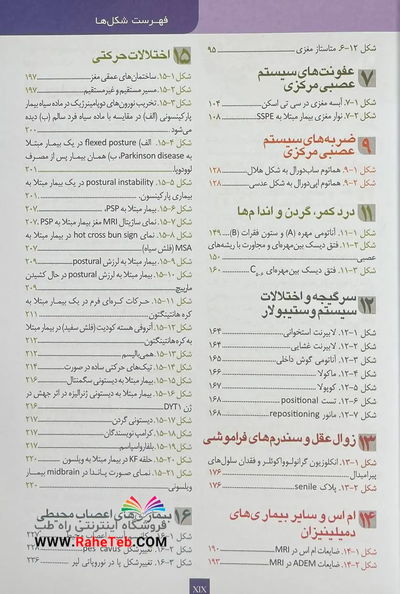 فهرست شکل‌ها
شکل ۱۲-۶. متاستاز مغزی ۹۵
۷ عفونت‌های سیستم
عصبی مرکزی
شکل ۱-۷. آبسه مغزی در سی تی اسکن
شکل ۲-۷. نوار مغزی بیمار مبتلا به SSPE ۱۰۸
۹ ضربه‌های سیستم
عصبی مرکزی
شکل ۱-۹. هماتوم ساب‌دورال به شکل هلال ۱۲۸
شکل ۲-۹. هماتوم اپی‌دورال به شکل عدسی ۱۲۸
۱۱ درد کمر، گردن و اندام‌ها
شکل ۱-۱۱. آناتومی مهره (A) و ستون فقرات (B) ۱۴۹
شکل ۲-۱۱. فتق دیسک بین‌مهره‌ای و مجاورت با ریشه‌های
عصبی ۱۵۰
شکل ۳-۱۱. فتق دیسک بین‌مهره‌ای ۱۶۰
۱۲ سرگیجه و اختلالات
سیستم وستیبولار
شکل ۱-۱۲. لابیرنت استخوانی ۱۶۴
شکل ۲-۱۲. لابیرنت غشایی ۱۶۴
شکل ۳-۱۲. آناتومی گوش داخلی ۱۶۵
شکل ۴-۱۲. ماکولا ۱۶۶
شکل ۵-۱۲. کوپولا ۱۶۷
شکل ۶-۱۲. تست positional ۱۶۷
شکل ۷-۱۲. مانور repositioning ۱۶۸
۱۳ زوال عقل و سندرم‌های فراموشی
شکل ۱-۱۳. انکلوزیون گرانولوواکوئلر و فقدان سلول‌های
پیرامیدال ۱۷۶
شکل ۲-۱۳. پلاک senile ۱۷۶
۱۴ ام اس و سایر بیماری‌های
دمیلینیزان
شکل ۱-۱۴. ضایعات ام‌اس در MRI ۱۹۰
شکل ۲-۱۴. ضایعات ADEM در MRI ۱۹۳
۱۵ اختلالات حرکتی
شکل ۱-۱۵. ساختمان‌های عمقی مغز ۱۹۷
شکل ۲-۱۵. مسیر مستقیم و غیرمستقیم ۱۹۷
شکل ۳-۱۵. تخریب نورون‌های دوپامینرژیک در ماده سیاه بیمار
پارکینسونی (الف) در مقایسه با ماده سیاه فرد سالم (ب) دیده
می‌شود ۲۰۰
شکل ۴-۱۵. (الف) flexed posture در یک بیمار مبتلا
به Parkinson disease، ب) همان بیمار پس از مصرف
لوودوپا ۲۰۱
شکل ۵-۱۵. postural instability در یک بیمار مبتلا به
بیماری پارکینسون ۲۰۱
شکل ۶-۱۵. بیمار مبتلا به PSP ۲۰۷
شکل ۷-۱۵. نمای ساژیتال MRI مغز بیمار مبتلا به PSP ۲۰۷
شکل ۸-۱۵. نمای hot cross bun sign در بیمار مبتلا به
MSA (فلش سیاه)
شکل ۹-۱۵. بیمار مبتلا به لرزش postural ۲۰۹
شکل ۱۰-۱۵. بیمار مبتلا به لرزش postural در حال کشیدن
مارپیچ ۲۰۹
شکل ۱۱-۱۵. حرکات کره‌ای فرم در یک بیمار مبتلا به
کره هانتینگتون ۲۱۱
شکل ۱۲-۱۵. آتروفی هسته کودیت (فلش سفید) در بیمار مبتلا
به کره هانتینگتون
شکل ۱۳-۱۵. همی‌بالیسم
شکل ۱۴-۱۵. تیک‌های حرکتی ساده در صورت ۲۱۴
شکل ۱۵-۱۵. بیمار مبتلا به دیستونی سگمنتال ۲۱۶
شکل ۱۶-۱۵. بیمار مبتلا به دیستونی ژنرالیزه در اثر جهش در
ژن DYT1 ۲۱۶
شکل ۱۷-۱۵. دیستونی گردن ۲۱۷
شکل ۱۸-۱۵. کرامپ نویسندگان ۲۱۷
شکل ۱۹-۱۵. بلفارواسپاسم
شکل ۲۰-۱۵. حلقه KF در بیمار مبتلا به ویلسون ۲۲۰
شکل ۲۱-۱۵. نمای صورت پاندا در midbrain بیمار
ویلسونی ۲۲۰
۱۶ بیماری‌های اعصاب محیطی
فروشگاه اینترنتی راه طب
شکل ۲-۱۶. تغییر شکل pes cavus ۲۲۸
شکل ۳-۱۶. تغییر شکل پا در نوروپاتی لپر ۲۳۶
www.RaheTeb.com
XIX